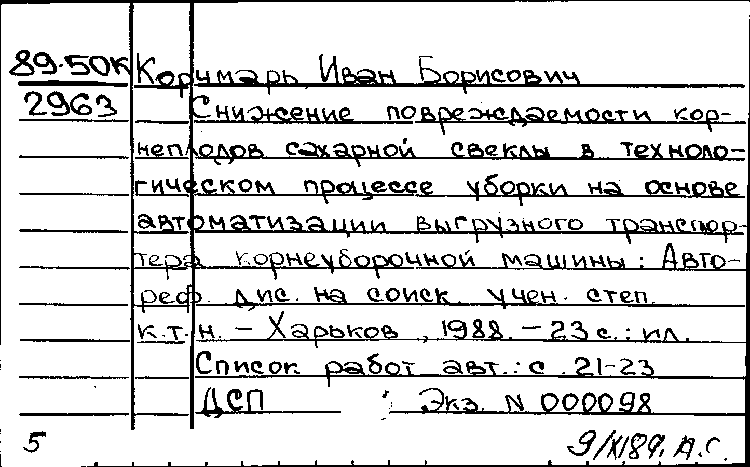 89-50К Корчмарь Иван Борисович
2963 Снижение повреждаемости кор-
неплодов сахарной свеклы в техноло-
гическом процессе уборки на основе
автоматизации выгрузного транспор-
тера корнеуборочной машины: Авто-
реф. дис. на соиск. учен. степ.
к.т.н. - Харьков, 1988. - 23 с.: ил.
Список работ авт.: с. 21-23
ДСП Экз. N 000098
5 9/XI89. А.С.